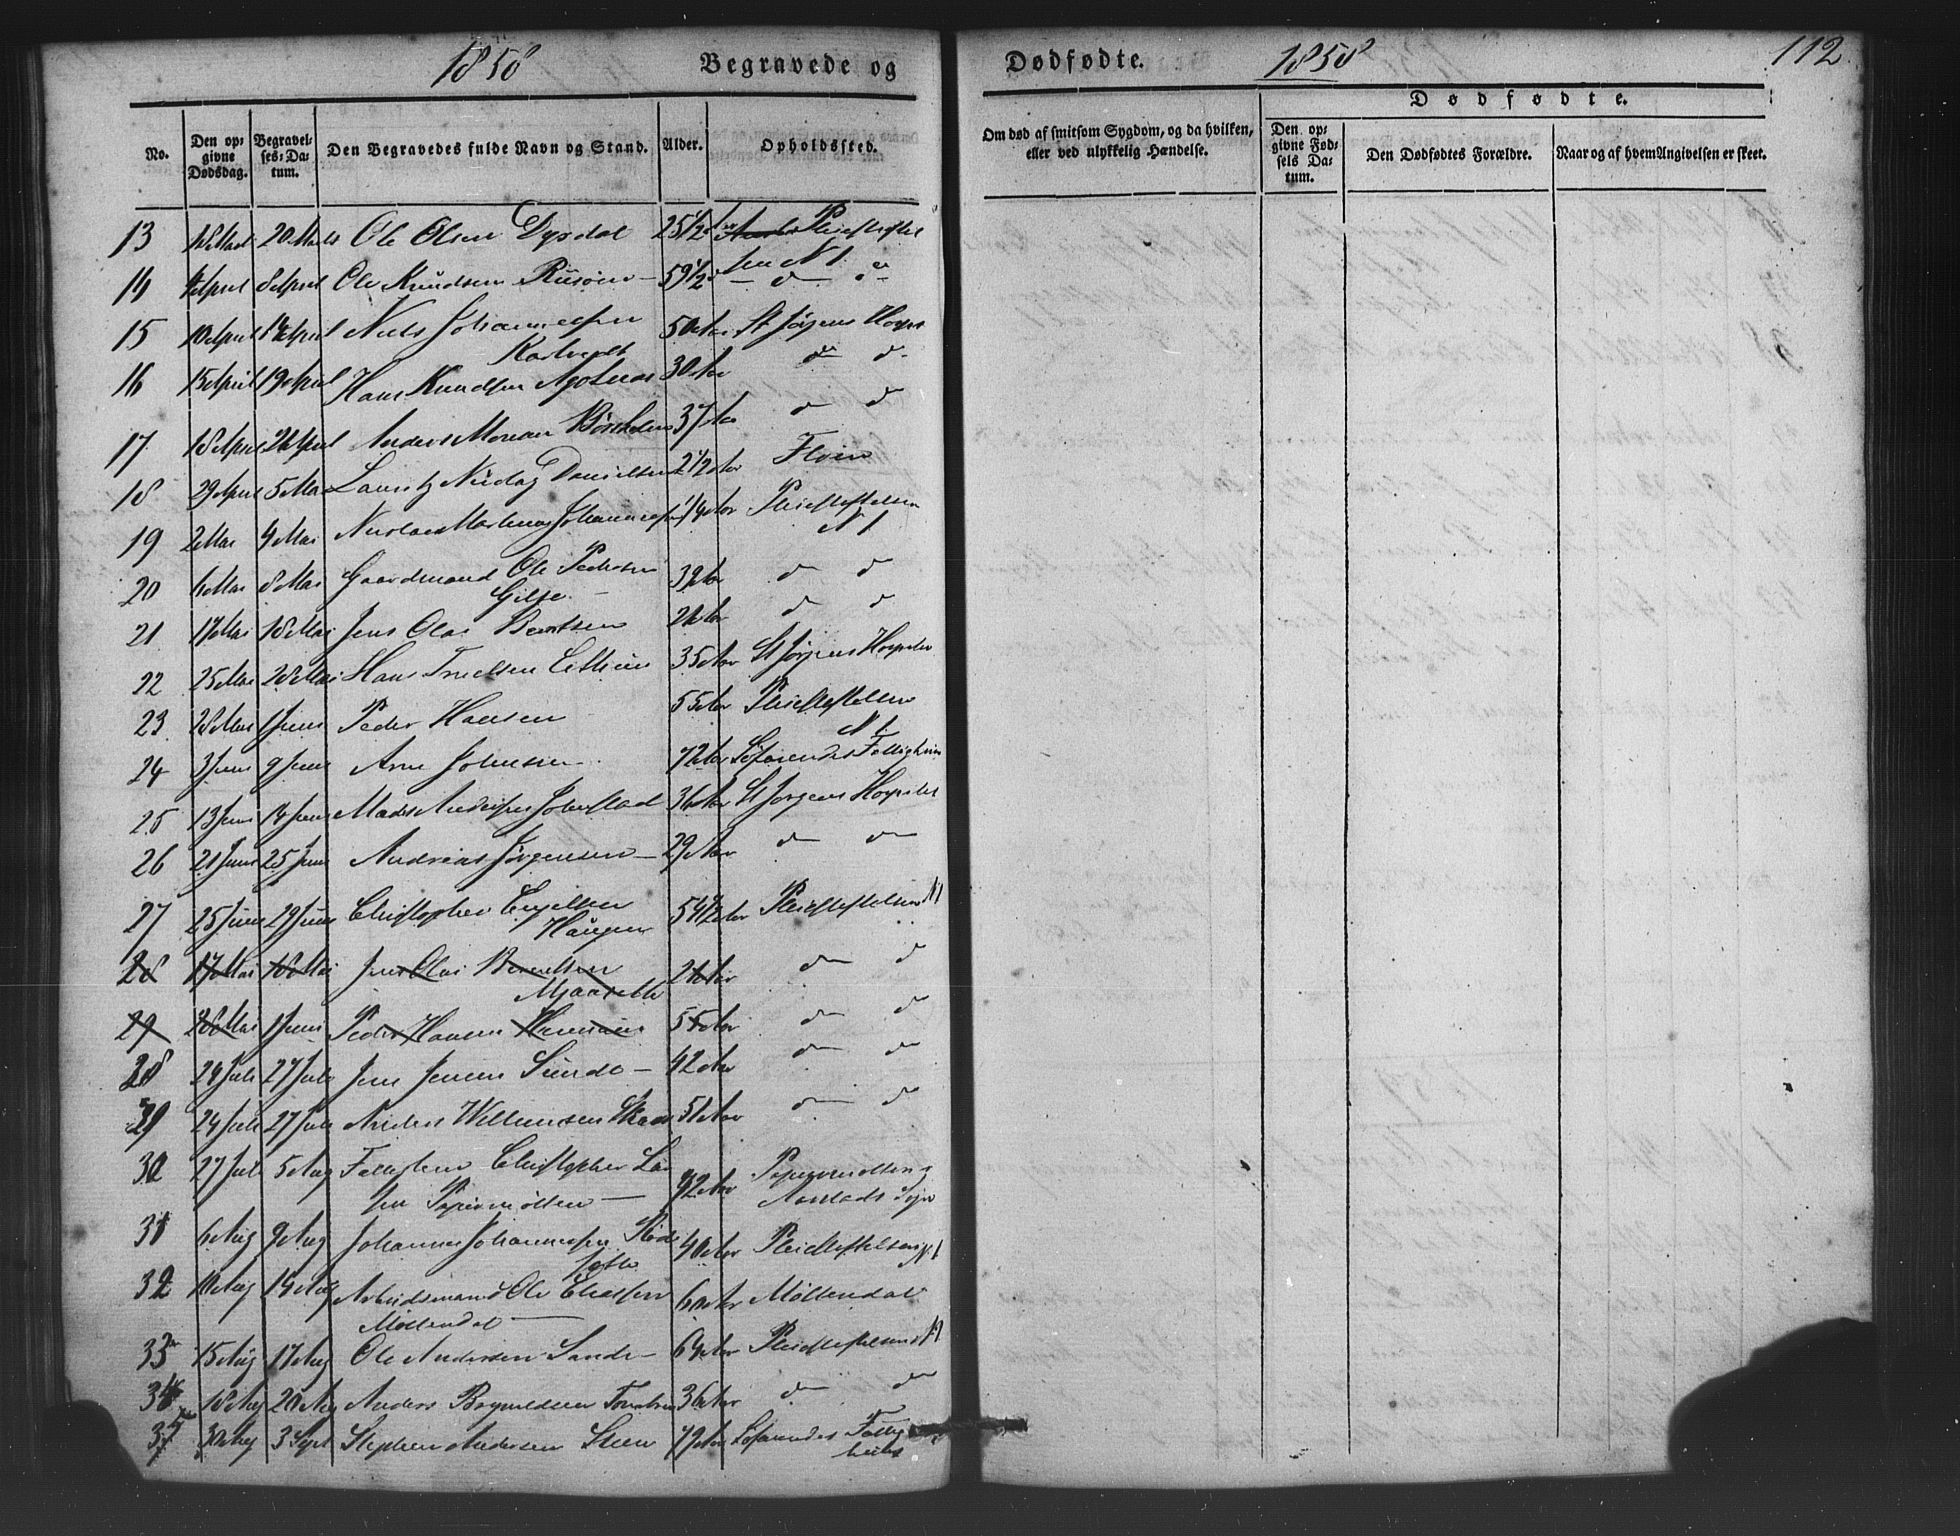 1858 Begravede og
No. Den opgivne Dødsdag. Begravelses-Datum. Den Begravedes fulde Navn og Stand. Alder. Opholdssted.
13 18 Marts 20 Marts Ole Olsen Dysdal 25 1/2 Pleiestiftelsen N 1
14 4 April 8 April Ole Knudsen Risøen 59 1/2 d d
15 10 April 14 April Niels Johannessen 50 Aar St Jørgens Hospit
16 15 April 19 April Hans Knudsen Agotnes 30 Aar d d
17 18 April 24 April Anders Monsen 37 Aar d d
18 29 April 5 Mai Lauritz Danielsen 2 1/2 Aar Fløien
19 2 Mai 4 Mai Nicolai Martinus Johannessen 14 Aar Pleiestiftelsen
N 1
20 6 Mai 8 Mai Gaardmand Ole Pedersen 39 Aar d d
Gilje
21 17 Mai 18 Mai Jens Olai Berntsen 21 Aar d d
22 25 Mai 28 Mai Hans Truelsen 35 Aar St Jørgens Hospital
23 28 Mai 1 Juni Peder Hansen 55 Aar Pleiestiftelsen
N 1
24 3 Juni 9 Juni Arne Johnsen 72 Aar Søfarendes Fattighuus
25 13 Juni 14 Juni Mads Andersen Jølstad 36 Aar St Jørgens Hospital
26 21 Juni 25 Juni Andreas Jørgensen 29 Aar d d
27 25 Juni 29 Juni Christopher Engelsen 54 1/2 Aar Pleiestiftelsen N 1
Haugen
28 17 Mai 18 Mai Jens Olai Berntsen 21 Aar d d
29 28 Mai 1 Juni Peder Hansen 55 Aar d d
28 24 Juli 27 Juli Jens Jensen Sunde 42 Aar d d
29 24 Juli 27 Juli Anders Willumsen 51 Aar d d
30 27 Juli 5 Aug Fattiglem Christopher 42 Aar Papirmøllen
Papirmøllen Aarstads Sogn
31 6 Aug 9 Aug Johannes Johannessen 40 Aar Pleiestiftelsen N 1
32 10 Aug 14 Aug Arbeidsmand Ole Eliassen 60 Aar Møllendal
Møllendal
33 15 Aug 17 Aug Ole Andersen Sande 64 Aar Pleiestiftelsen N 1
34 18 Aug 20 Aug Anders Brynildsen 36 Aar d d
35 30 Aug 3 Sept Stephen Andersen Steen 79 Aar Søfarendes Fattighuus
Dødfødte. 1858 112.
Dødfødte.
Om død af smitsom Sygdom, og da hvilken, eller ved ulykkelig Hændelse. Den opgivne Fødsels Datum. Den Dødfødtes Forældre. Naar og af hvem Angivelsen er skeet.